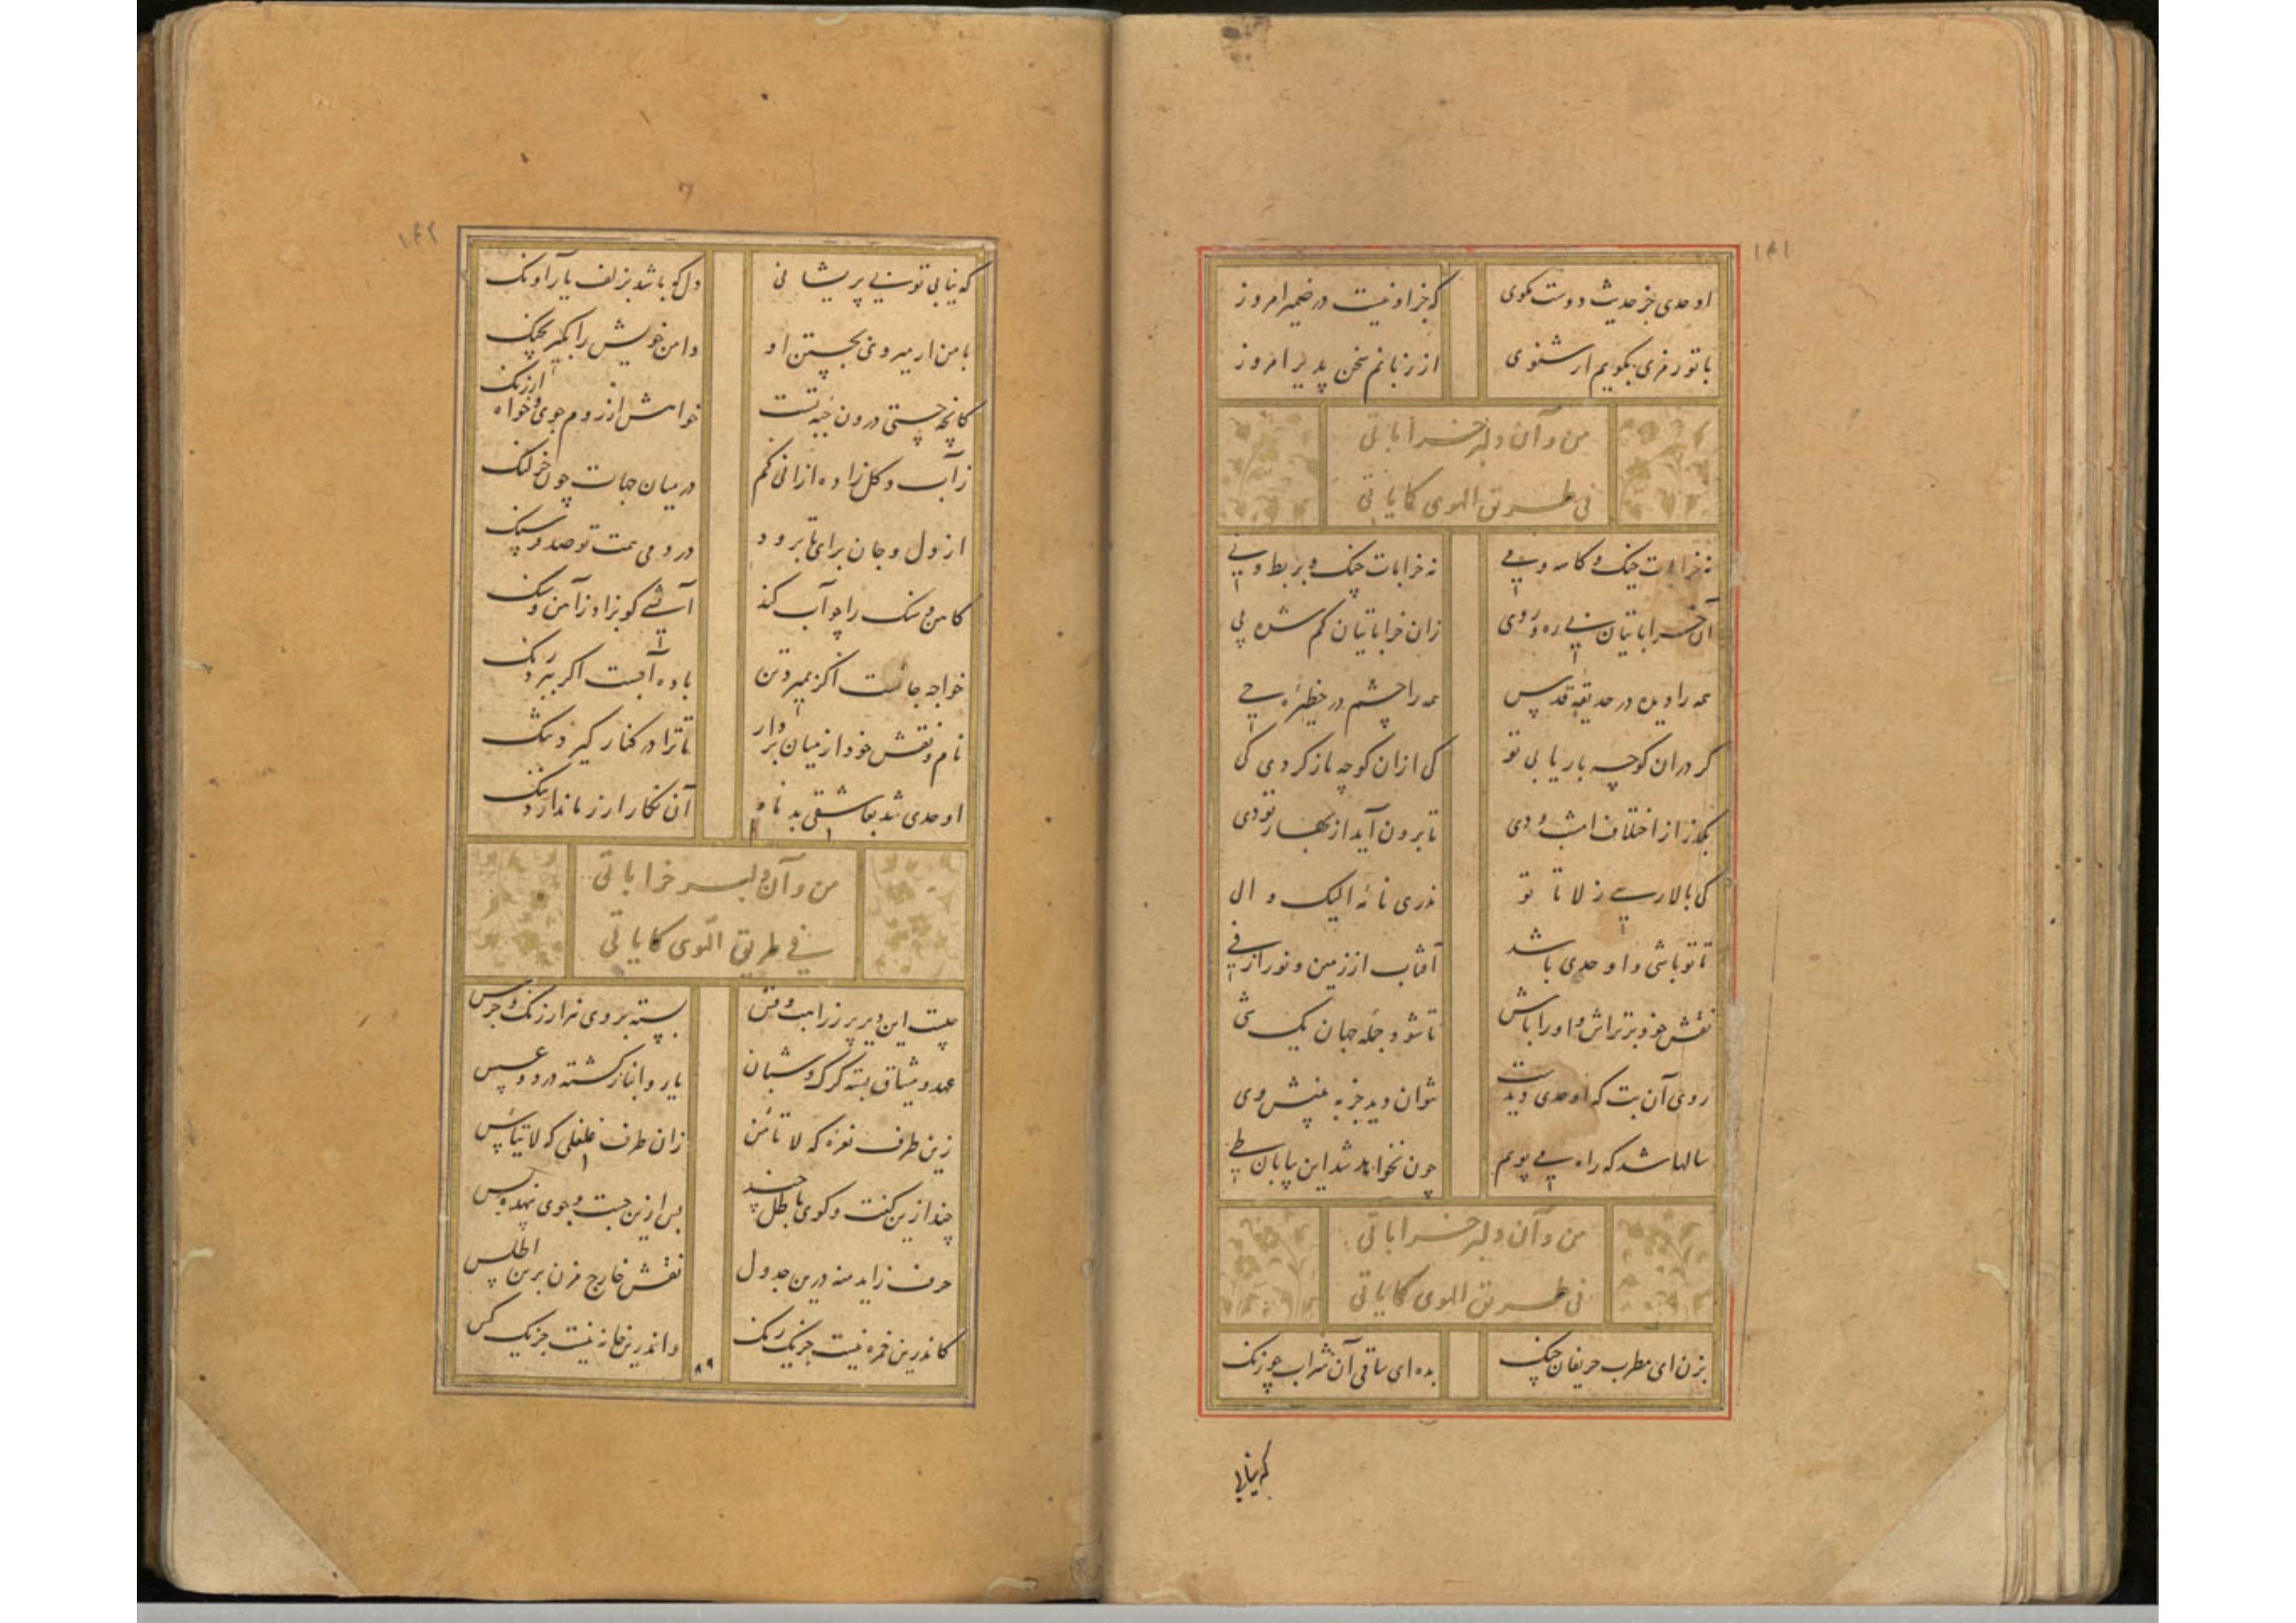 ۱۴۱
اوحدی جز حدیث دوست مکوی که جز او نیست در ضمیر امروز
با تو رمزی بکویم ار شنوی از زبانم سخن پذیر امروز
من و آن دلبر خراباتی
فی طریق الهوی کمایاتی
نه خرابات چنک و کاسه و می نه خرابات چنک و بربط و نی
آن خراباتیان بی ره و روی زان خراباتیان کم شده پی
همه را دیده در حدیقه قدس همه را چشم در حظیره حی
کر در آن کوچه بار یابی تو کی از آن کوچه باز کردی کی
بگذر از اختلاف امشب و دی تا برون آید از بهار تو دی
کی بالا رسی ز لا تا تو نذری نا نه الیک و ال
تا تو باشی و اوحدی باشد آفتاب از زمین و نور از فی
نقش خود بر تراش و او را باش تا شود جمله جهان یک شی
روی آن بت که اوحدی دیدست نتوان دید جز به بینش وی
سالها شد که راه می پویم چون نخواهد شد این بیابان طی
من و آن دلبر خراباتی
فی طریق الهوی کمایاتی
بزن ای مطرب حریفان چنک بده ای ساقی آن شراب چو زنک
که نیابی
۱۴۲
که نیابی تو بی پریشانی دل که باشد بزلف یار آونک
با من ار میروی بجستن او دامن خویش را بکیر بچنک
کانچه جستی درون جبه تست خواهش از روم جوی و خواه از زنک
ز آب و کل زاده از انی کم در میان جهات چون خر لنک
از دل و جان برای تا برود در دمی همت تو صد فرسنک
کاهن و سنک را چو آب کند آتشی کو بزاد ز آهن و سنک
خواجه جانست اکر بمیرد تن باده آبست اکر ببرد رنک
نام و نقش خود از میان بردار تا ترا در کنار کیرد تنک
اوحدی شد بعاشقی بدنام آن نکار ار ز ما ندارد ننک
من و آن دلبر خراباتی
فی طریق الهوی کمایاتی
چیست این دیر پر ز راهب و قس بسته بر وی هزار زنک و جرس
عهد و میثاق بسته کرک و شبان یار و انباز کشته دزد و عسس
زین طرف نعره که لا تامن زان طرف غلغلی که لا تیأس
چند ازین کفت و کوی باطل چند بس ازین جست و جوی بیهده بس
حرف زاید منه درین جدول نقش خارج مزن برین اطلس
کاندرین خمره نیست جز یک رنک و اندرین خانه نیست جز یک کس
۸۹